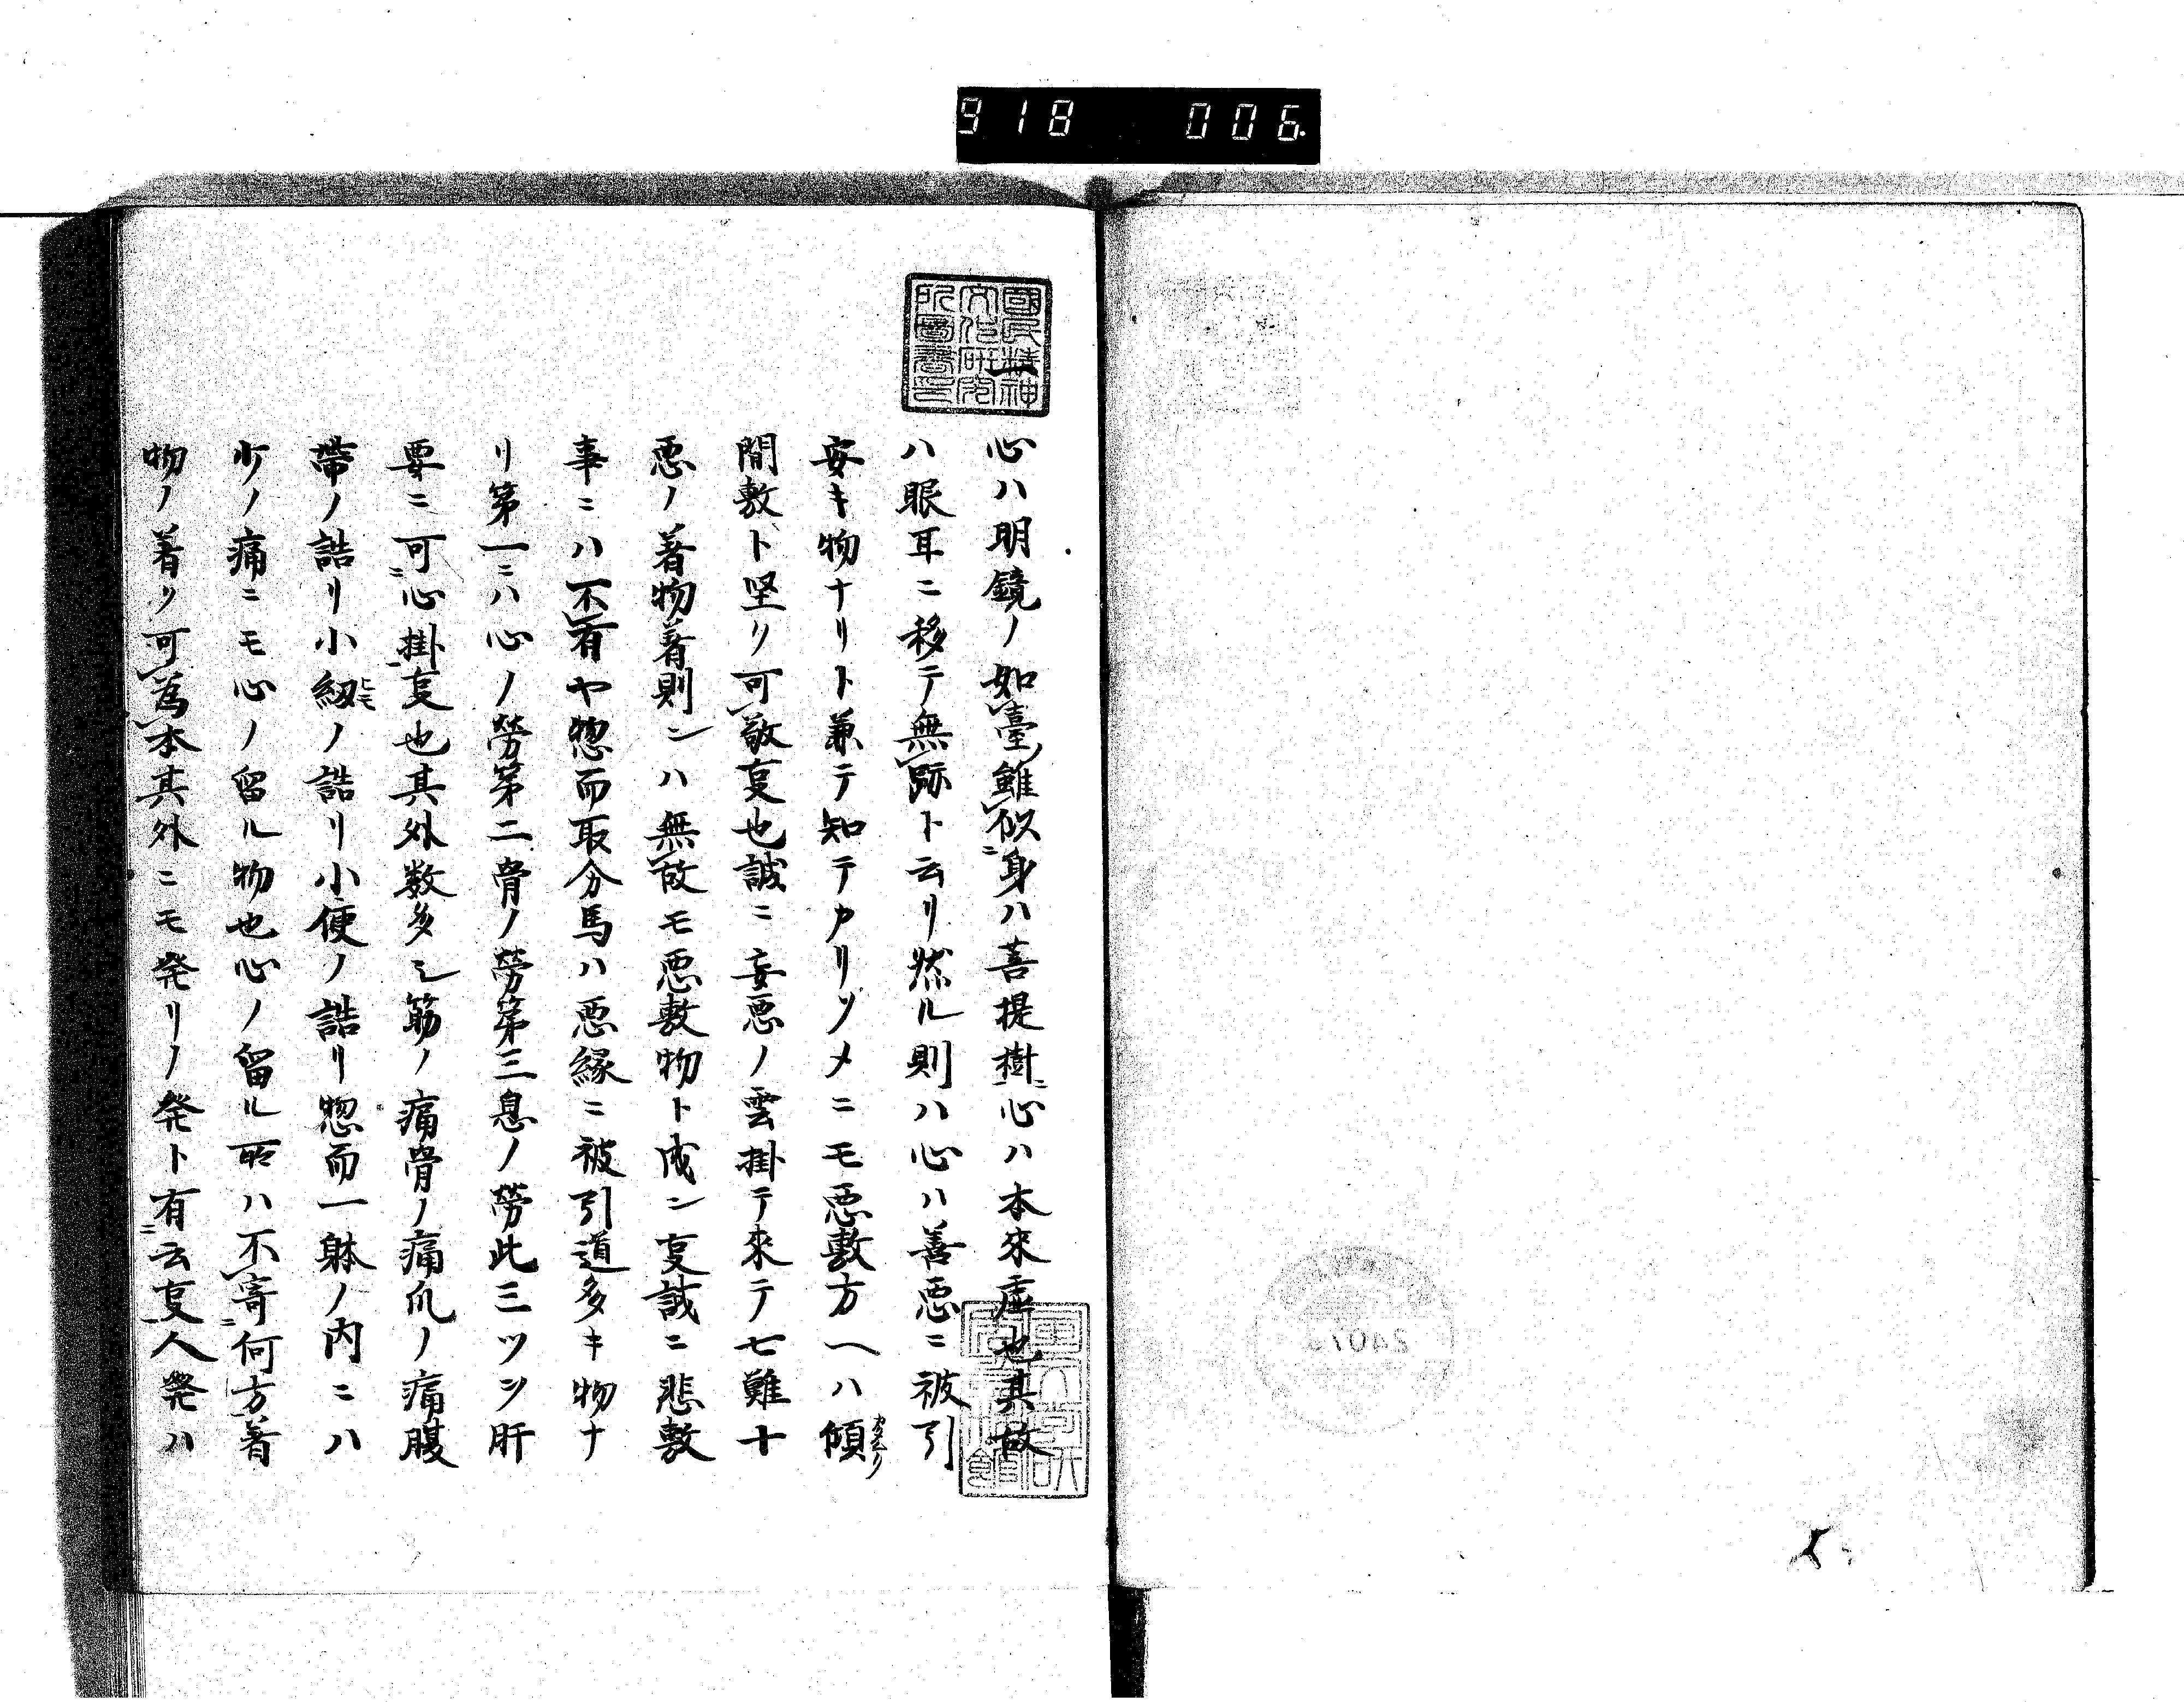 918 006.
國民精神
文化研究
所圖書之印
心ハ明鏡ノ如臺雖似身ハ菩提樹心ハ本來虚也其故
ハ眼耳ニ移テ無跡ト云リ然ル則ハ心ハ善悪ニ被引
安キ物ナリト兼テ知テカリソメニモ悪敷方ヘハ傾カタムクリ
間敷ト堅ク可敬叓也誠ニ妄悪ノ雲掛テ來テ七難十
悪ノ着物着則ンハ無故モ悪敷物ト成ン叓誠ニ悲敷
事ニハ不有ヤ惣而取分馬ハ悪縁ニ被引道多キ物ナ
リ第一ニハ心ノ勞第二骨ノ勞第三息ノ勞此三ツヲ肝
要ニ可心掛叓也其外数多シ筋ノ痛骨ノ痛爪ノ痛腹
帶ノ詰リ小紐ヒモノ詰リ小便ノ詰リ惣而一躰ノ内ニハ
少ノ痛ニモ心ノ留ル物也心ノ留ル所ハ不寄何方着
物ノ着ク可為本其外ニモ発リノ発ト有云叓人発ハ